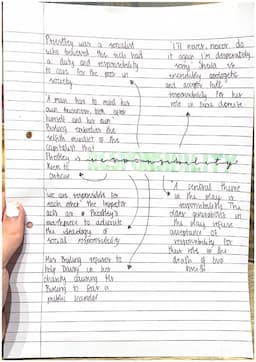 Priestley was a socialist
who believed the rich had
a duty and responsibility
to care for the poor in
society
'I'll never, never do
it again I'm desperately
sorry' Sheila is
incredibly apologetic
and accepts full
responsibility for her
role in Eva's demise
'A man has to mind his
own business, look after
himself and his own'
Birling embodies the
selfish mindset of the
Capitalist that
Priestley is
keen to
criticise
RESPONSIBILITY
responsibility
'We are responsible for
each other' The Inspector
acts as Priestley's
mouthpiece to advocate
the ideology of
social responsibility
A central theme
in the play is
responsibility. The
older generations in
the play refuse
acceptance of
responsibility for
their role in the
death of Eva
Smith
Mrs Birling refuses to
help Daisy in her
charity causing Mr
Birling to fear a
public scandal